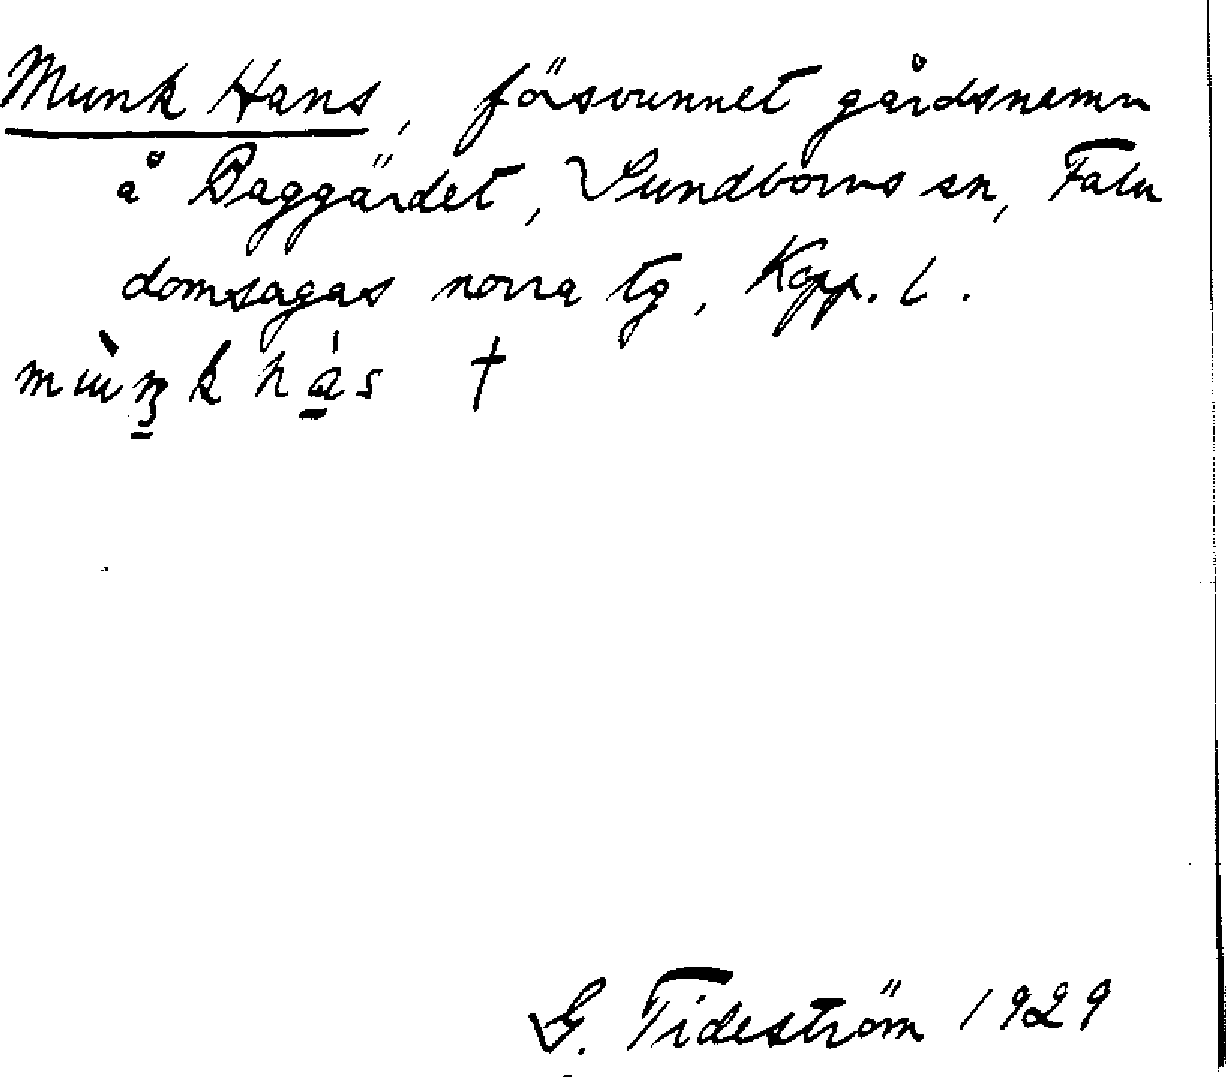 Munk Hans, försvunnet gårdsnamn
å Baggärdet, Sundborns sn, Falu
domsagas norra tg, Kopp. l.
†
G. Tideström 1929